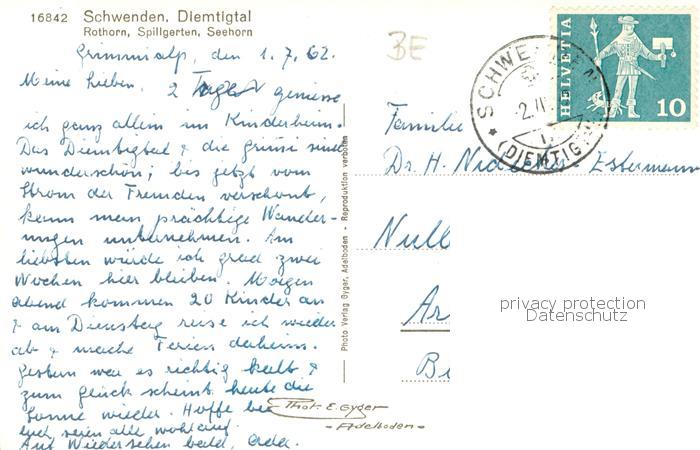 16842 Schwenden, Diemtigtal
Rothorn, Spillgerten, Seehorn
BE
Grimmialp, den 1.7.62.
Meine Lieben. 2 Tage geniesse
ich ganz allein im Kinderheim.
Das Diemtigtal & die Grimi sind
wunderschön; bis jetzt vom
Strom der Fremden verschont,
kann man prächtige Wander-
ungen unternehmen. Am
liebsten würde ich grad zwei
Wochen hier bleiben. Morgen
abend kommen 20 Kinder an
& am Dienstag reise ich wieder
ab & mache Ferien daheim.
Gestern war es richtig kalt &
zum Glück scheint heute die
Sonne wieder. Hoffe bei
Euch seien alle wohlauf.
Auf Wiedersehen bald, Ada.
Photo Verlag Gyger, Adelboden - Reproduktion verboten
Phot. E. Gyger
- Adelboden -
SCHWENDEN
(DIEMTIG
HELVETIA
10
Familie
Dr. H. Estermann
Null
Ar
privacy protection
Datenschutz